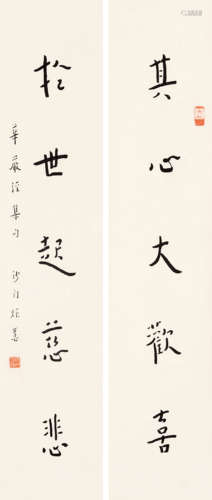 其心大歡喜
於世起慈悲
華嚴經集句 沙門